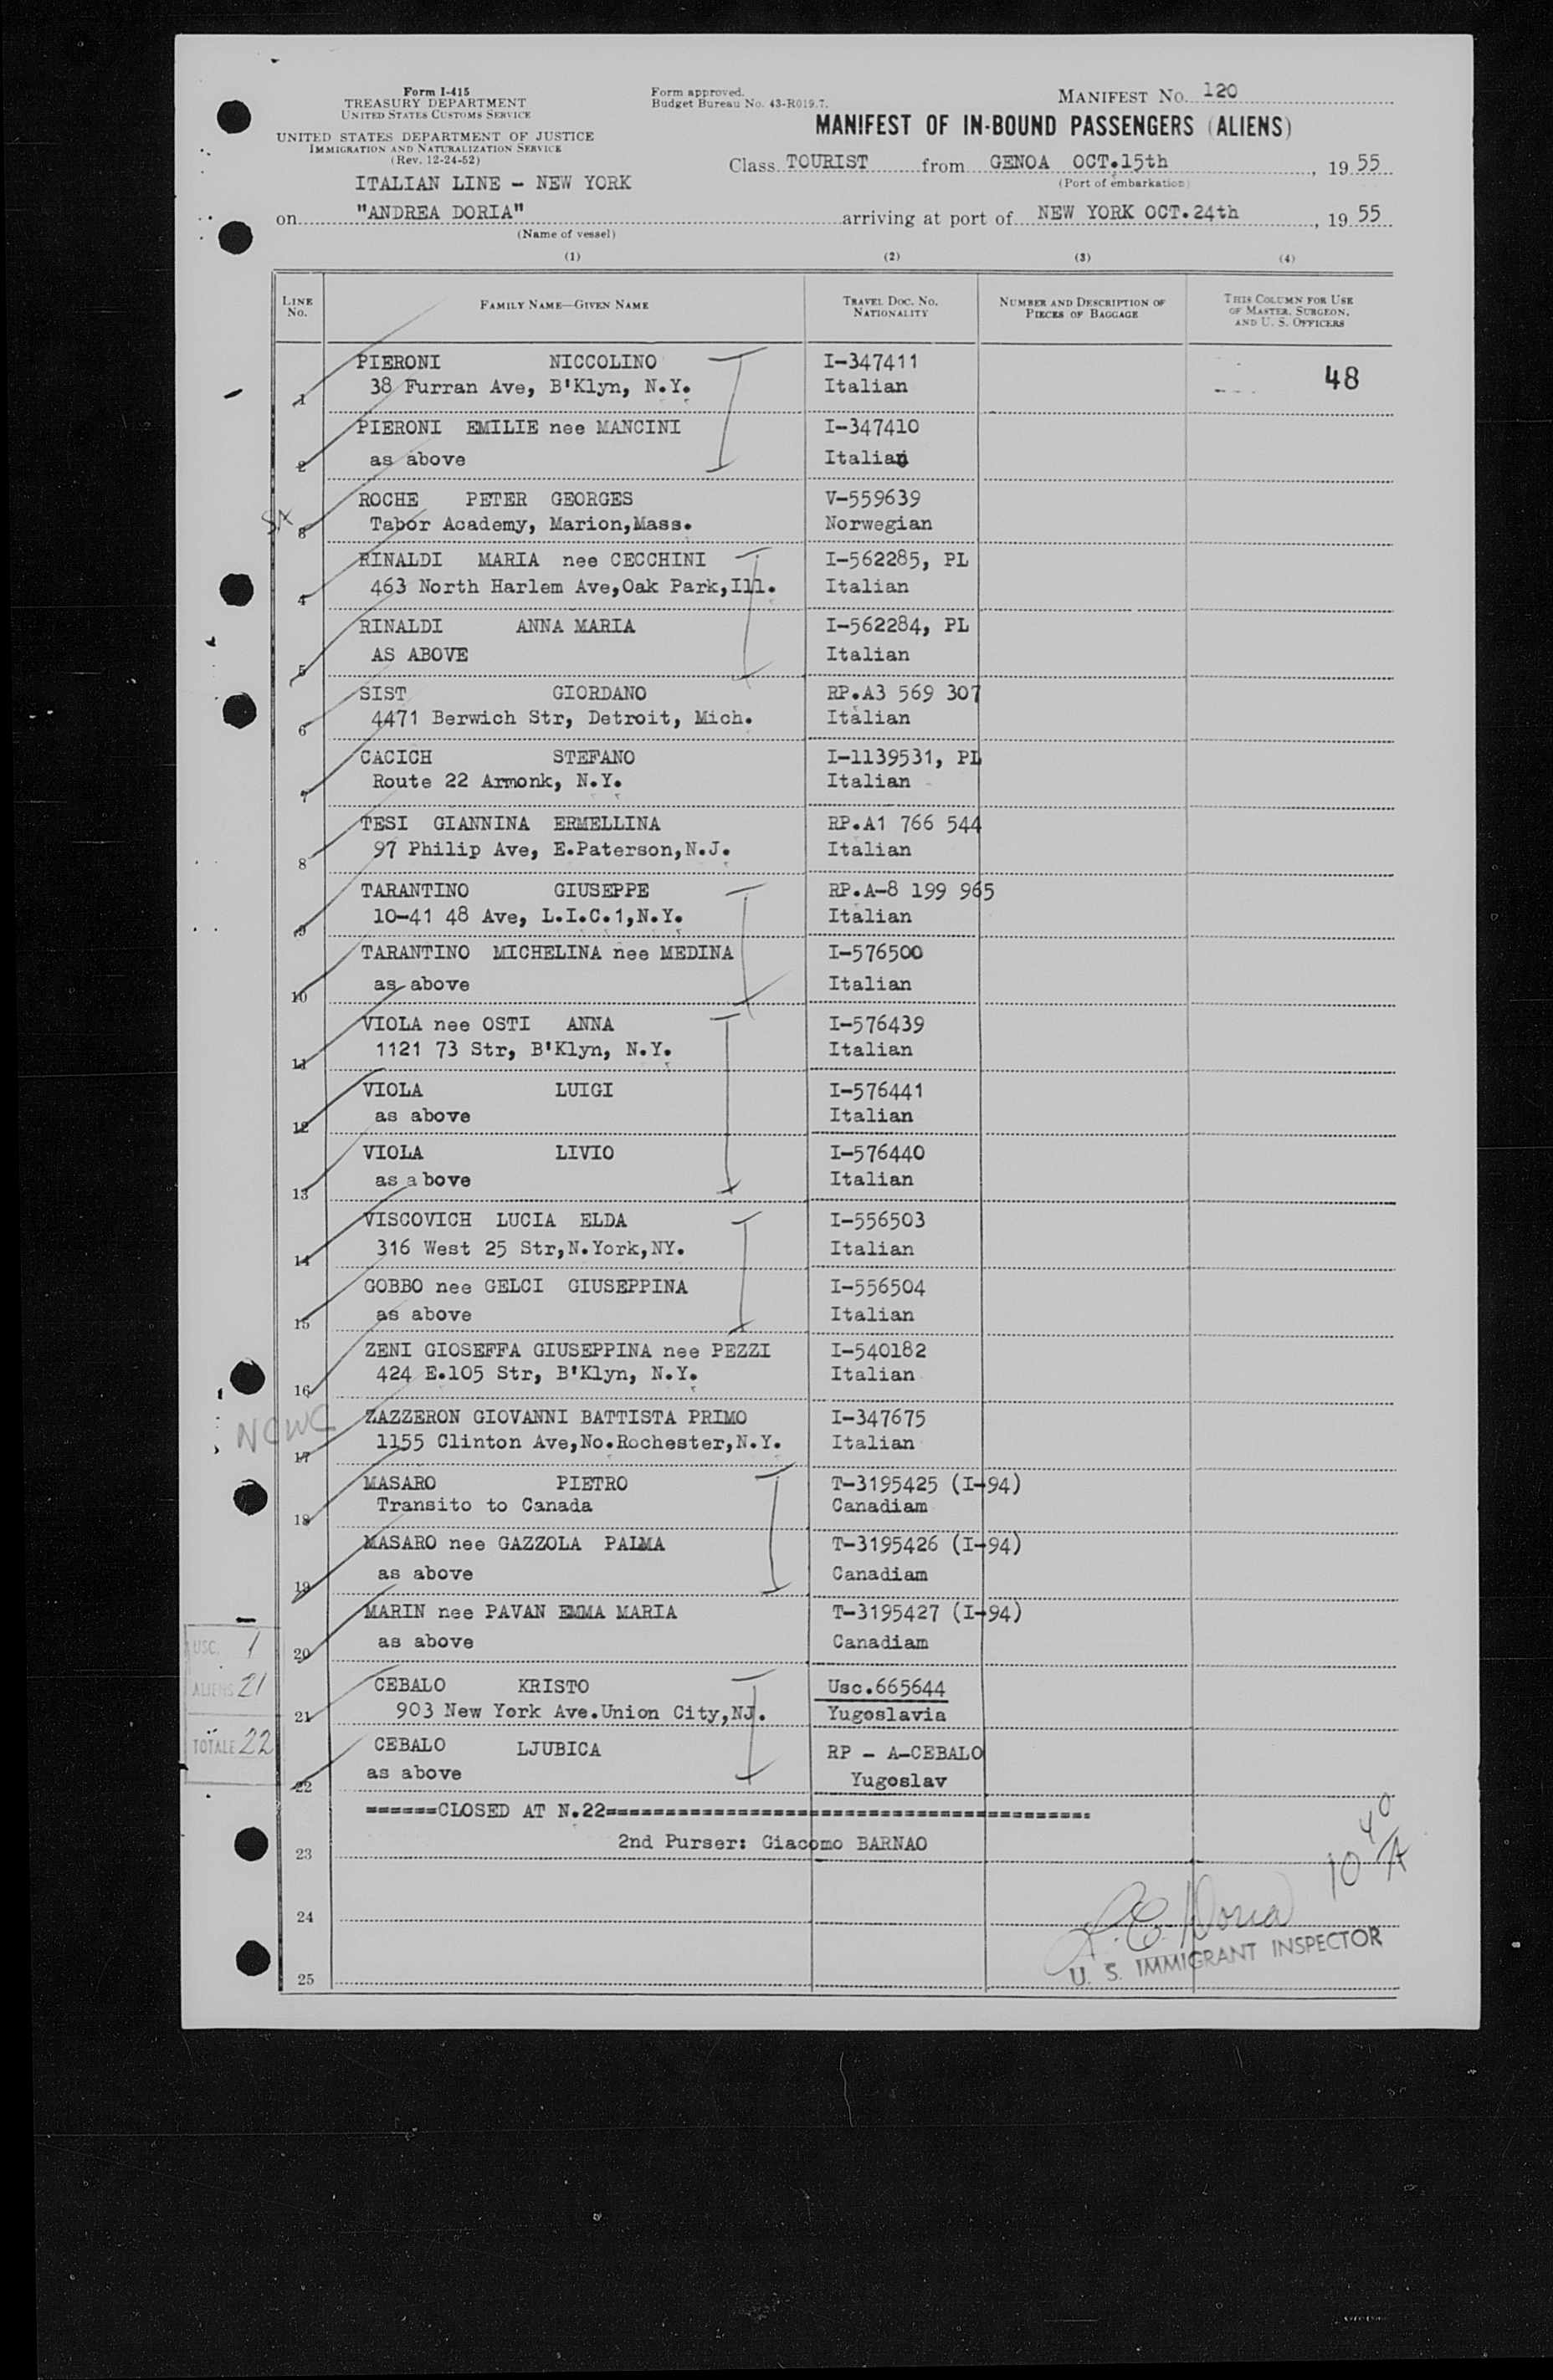 Form I-415
TREASURY DEPARTMENT
UNITED STATES CUSTOMS SERVICE
UNITED STATES DEPARTMENT OF JUSTICE
IMMIGRATION AND NATURALIZATION SERVICE
(Rev. 12-24-52)
Form approved.
Budget Bureau No. 43-R019.7.
MANIFEST NO. 120
MANIFEST OF IN-BOUND PASSENGERS (ALIENS)
Class TOURIST from GENOA OCT.15th, 19 55
(Port of embarkation)
ITALIAN LINE - NEW YORK
on "ANDREA DORIA" arriving at port of NEW YORK OCT.24th, 19 55
(Name of vessel)
(1) (2) (3) (4)
LINE No. FAMILY NAME—GIVEN NAME TRAVEL DOC. NO. NATIONALITY NUMBER AND DESCRIPTION OF PIECES OF BAGGAGE THIS COLUMN FOR USE OF MASTER, SURGEON, AND U. S. OFFICERS
PIERONI NICCOLINO I-347411
1 38 Furran Ave, B'Klyn, N.Y. Italian 48
PIERONI EMILIE nee MANCINI I-347410
2 as above Italian
ROCHE PETER GEORGES V-559639
3 Tabor Academy, Marion,Mass. Norwegian
RINALDI MARIA nee CECCHINI I-562285, PL
4 463 North Harlem Ave,Oak Park,Ill. Italian
RINALDI ANNA MARIA I-562284, PL
5 AS ABOVE Italian
SIST GIORDANO RP.A3 569 307
6 4471 Berwich Str, Detroit, Mich. Italian
CACICH STEFANO I-1139531, PL
7 Route 22 Armonk, N.Y. Italian
TESI GIANNINA ERMELLINA RP.A1 766 544
8 97 Philip Ave, E.Paterson,N.J. Italian
TARANTINO GIUSEPPE RP.A-8 199 965
9 10-41 48 Ave, L.I.C.1,N.Y. Italian
TARANTINO MICHELINA nee MEDINA I-576500
10 as above Italian
VIOLA nee OSTI ANNA I-576439
11 1121 73 Str, B'Klyn, N.Y. Italian
VIOLA LUIGI I-576441
12 as above Italian
VIOLA LIVIO I-576440
13 as above Italian
VISCOVICH LUCIA ELDA I-556503
14 316 West 25 Str,N.York,NY. Italian
GOBBO nee GELCI GIUSEPPINA I-556504
15 as above Italian
ZENI GIOSEFFA GIUSEPPINA nee PEZZI I-540182
16 424 E.105 Str, B'Klyn, N.Y. Italian
NCWC ZAZZERON GIOVANNI BATTISTA PRIMO I-347675
17 1155 Clinton Ave,No.Rochester,N.Y. Italian
MASARO PIETRO T-3195425 (I-94)
18 Transito to Canada Canadiam
MASARO nee GAZZOLA PALMA T-3195426 (I-94)
19 as above Canadiam
MARIN nee PAVAN EMMA MARIA T-3195427 (I-94)
20 as above Canadiam
USC. 1
ALIENS 21
TOTALE 22
CEBALO KRISTO Usc.665644
21 903 New York Ave.Union City,NJ. Yugoslavia
CEBALO LJUBICA RP - A-CEBALO
22 as above Yugoslav
======CLOSED AT N.22========================================
23 2nd Purser: Giacomo BARNAO
10 40 A
24
U. S. IMMIGRANT INSPECTOR
25